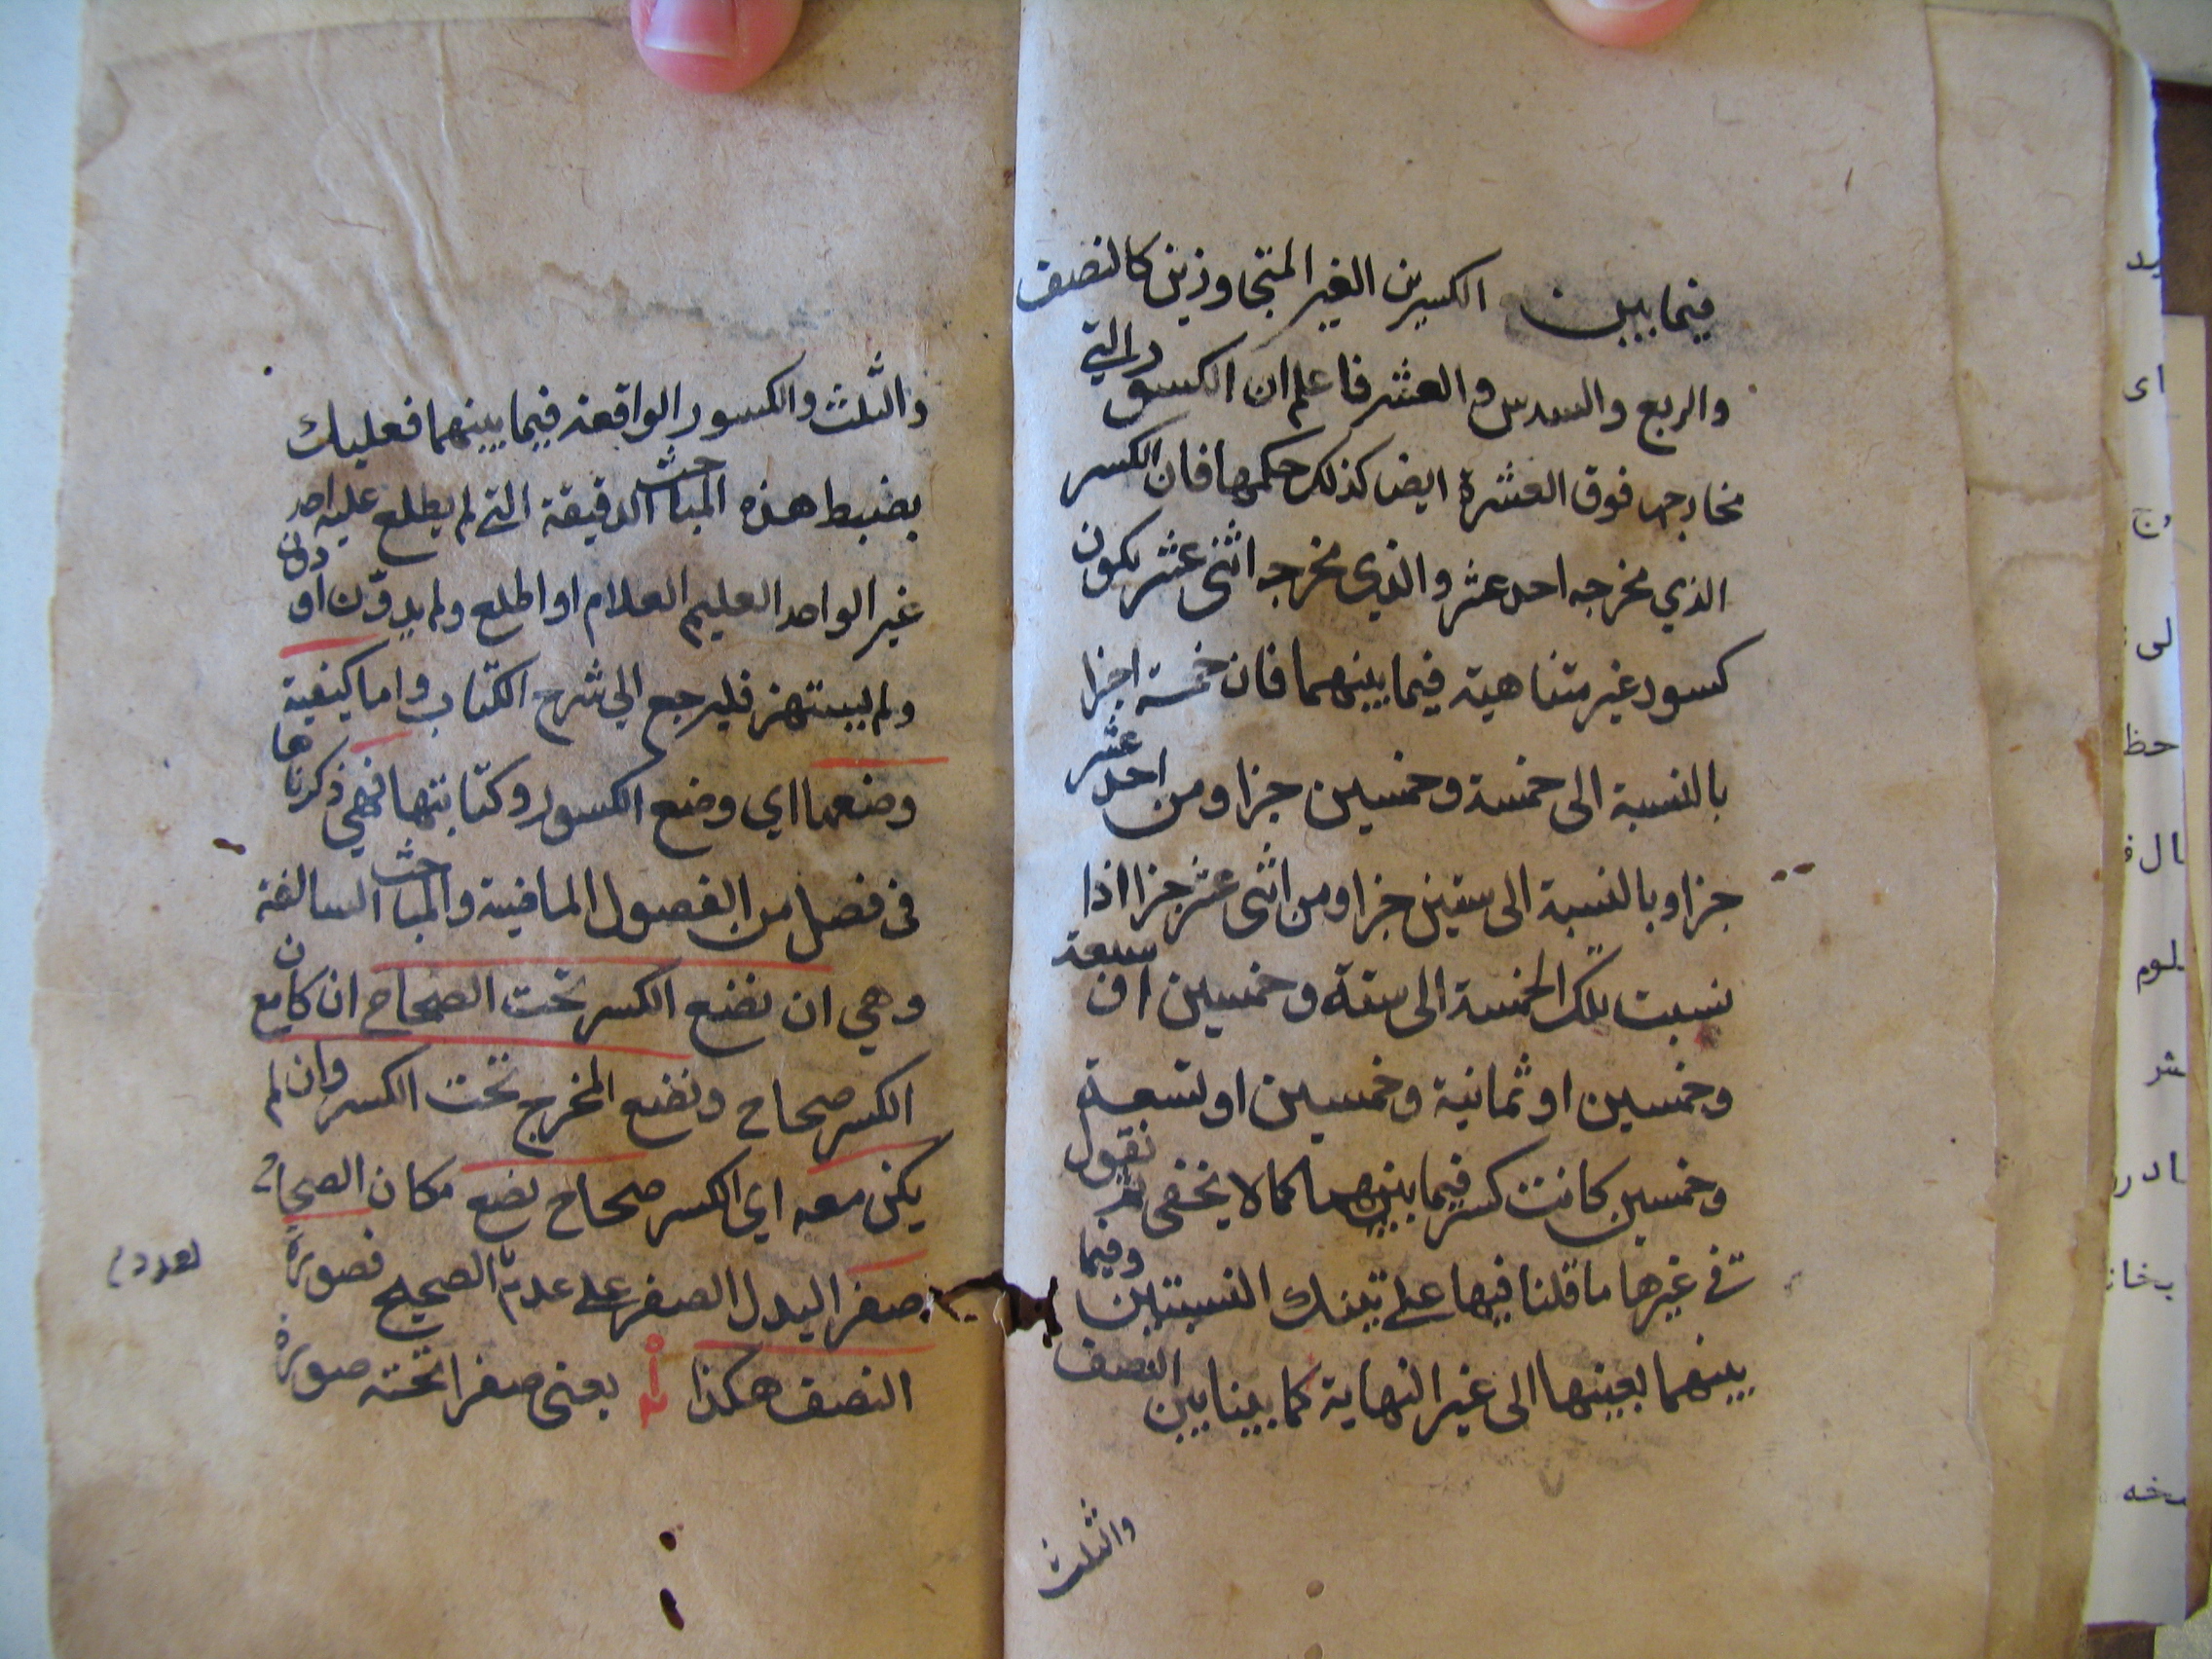 فيما بين الكسرين الغير المتجاوزين كالنصف
والربع والسدس والعشر فاعلم ان الكسور التي
مخارجها فوق العشرة ايضا كذلك حكمها فان الكسر
الذي مخرجه احد عشر والذي مخرجه اثنى عشر يكون
كسور غير متناهية فيما بينهما فان خمسة اجزا
بالنسبة الى خمسة وخمسين جزا ومن احد عشر
جزا وبالنسبة الى ستين جزا ومن اثنى عشر جزا اذا
نسبت تلك الخمسة الى ستة وخمسين او سبعة
وخمسين او ثمانية وخمسين او تسعة
وخمسين كانت كسر فيما بينهما كما لا يخفى ثم نقول
في غيرها ما قلنا فيها على تينك النسبتين وفيما
بينهما بعينها الى غير النهاية كما بينا بين النصف
والثلث
والثلث والكسور الواقعة فيما بينهما فعليك
بضبط هذه المباحث الدقيقة التي لم يطلع عليه احد
غير الواحد العليم العلام او اطلع ولم يدوّن او دون
ولم يستهز فليرجع الي شرح الكتاب واما كيفية
وضعها اي وضع الكسور وكتابتها فهي ذكرناها
في فصل من الفصول الماضية والمباحث السالفة
وهي ان نضع الكسر تحت الصحاح ان كان مع
الكسر صحاح ونضع المخرج تحت الكسر وان لم
يكن معه اي الكسر صحاح نضع مكان الصحاح
صفرا ليدل الصفر على عدم الصحيح فصورة
النصف هكذا يعنى صفرا تحته صورة